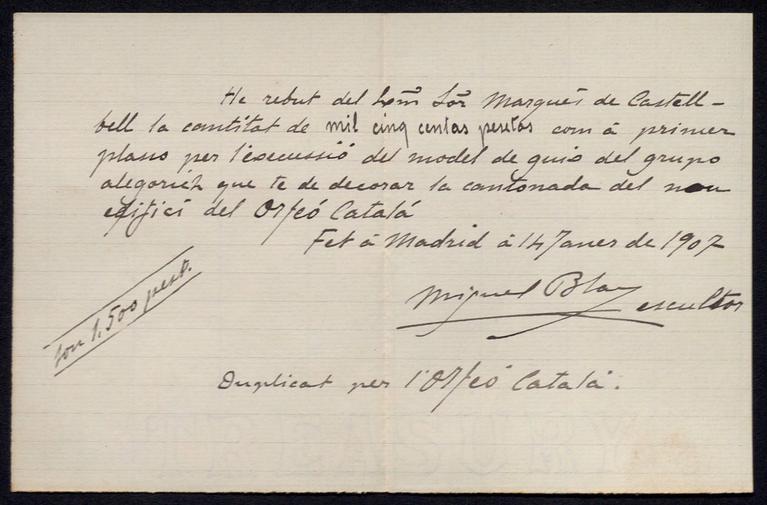 He rebut del Exm̃ Sor̃ Marqués de Castell-
bell la cantitat de mil cinq centas pesetas com á primer
plasso per l'execussió del model de guix del grupo
alegorich que te de decorar la cantonada del nou
edifici del Orfeó Catalá
Fet á Madrid á 14 Janer de 1907
Miguel Blay
escultor
Son 1.500 peset.
Duplicat per l'Orfeó Catalá.
TREASURY